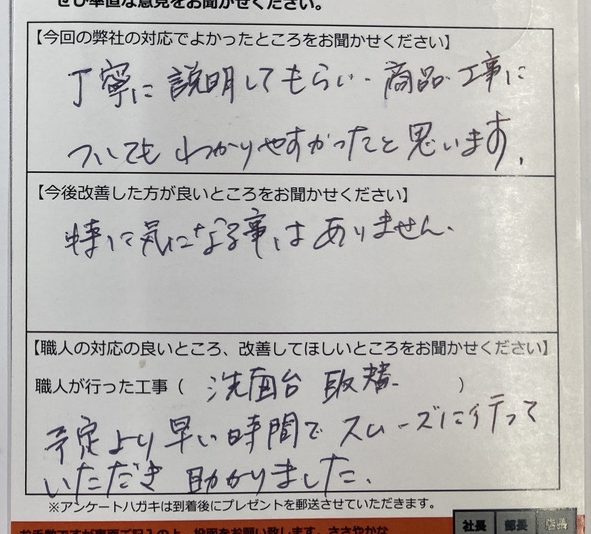 ぜひ率直な意見をお聞かせください。
【今回の弊社の対応でよかったところをお聞かせください】
丁寧に説明してもらい、商品、工事に
ついてもわかりやすかったと思います。
【今後改善した方が良いところをお聞かせください】
特に気になる事はありません。
【職人の対応の良いところ、改善してほしいところをお聞かせください】
職人が行った工事( 洗面台取替 )
予定より早い時間でスムーズに行って
いただき助かりました。
※アンケートハガキは到着後にプレゼントを郵送させていただきます。
お手数ですが裏面ご記入の上、投函をお願い致します。ささやかな
社長 部長 店長